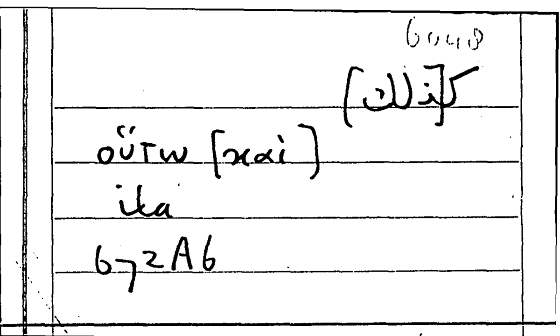 6048
ك[ذلك]
οὕτω [καὶ]
ita
672A6